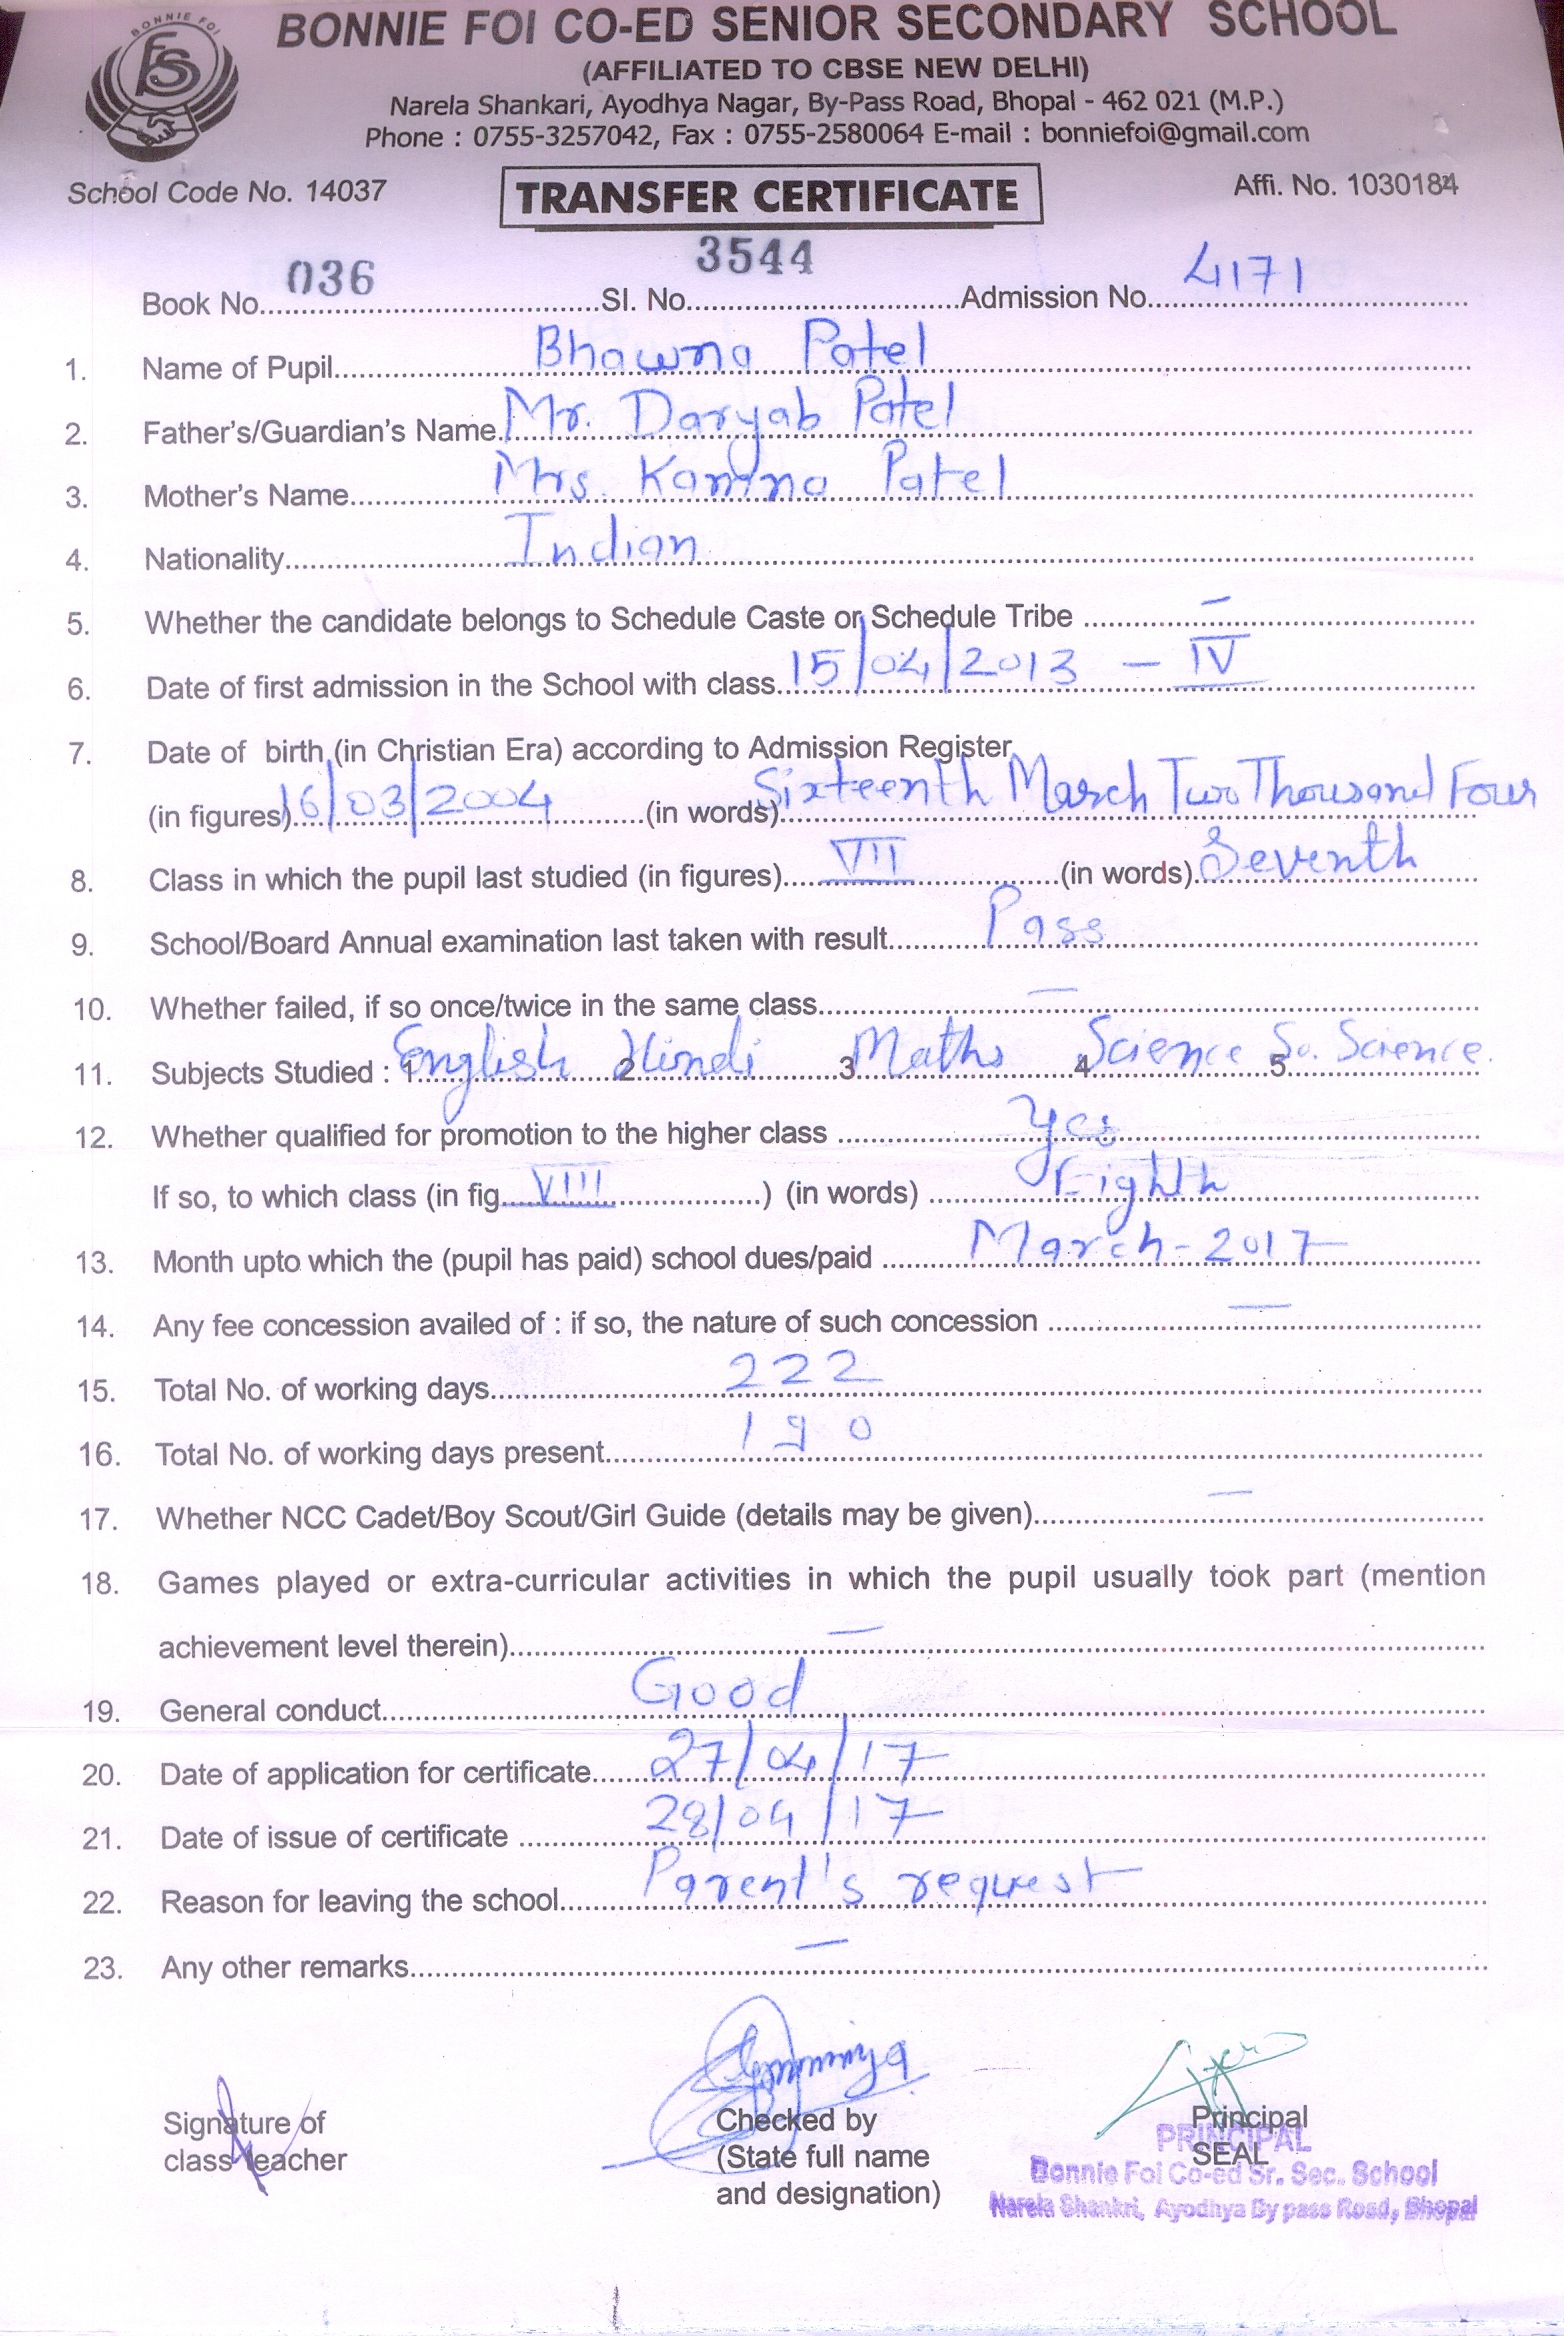 BONNIE FOI
BONNIE FOI CO-ED SENIOR SECONDARY SCHOOL
(AFFILIATED TO CBSE NEW DELHI)
Narela Shankari, Ayodhya Nagar, By-Pass Road, Bhopal - 462 021 (M.P.)
Phone : 0755-3257042, Fax : 0755-2580064 E-mail : bonniefoi@gmail.com
School Code No. 14037 TRANSFER CERTIFICATE Affi. No. 1030184
Book No. 036 Sl. No. 3544 Admission No. 4171
1. Name of Pupil Bhawna Patel
2. Father's/Guardian's Name Mr. Daryab Patel
3. Mother's Name Mrs. Kamna Patel
4. Nationality Indian
5. Whether the candidate belongs to Schedule Caste or Schedule Tribe —
6. Date of first admission in the School with class 15/04/2013 — IV
7. Date of birth (in Christian Era) according to Admission Register
(in figures) 16/03/2004 (in words) Sixteenth March Two Thousand Four
8. Class in which the pupil last studied (in figures) VII (in words) Seventh
9. School/Board Annual examination last taken with result Pass
10. Whether failed, if so once/twice in the same class —
11. Subjects Studied : 1 English 2 Hindi 3 Maths 4 Science 5 So. Science.
12. Whether qualified for promotion to the higher class Yes
If so, to which class (in fig VIII) (in words) Eighth
13. Month upto which the (pupil has paid) school dues/paid March-2017
14. Any fee concession availed of : if so, the nature of such concession —
15. Total No. of working days 222
16. Total No. of working days present 190
17. Whether NCC Cadet/Boy Scout/Girl Guide (details may be given) —
18. Games played or extra-curricular activities in which the pupil usually took part (mention
achievement level therein) —
19. General conduct Good
20. Date of application for certificate 27/04/17
21. Date of issue of certificate 28/04/17
22. Reason for leaving the school Parent's request
23. Any other remarks —
Signature of Checked by Principal
class teacher (State full name SEAL
and designation)
PRINCIPAL
Bonnie Foi Co-ed Sr. Sec. School
Narela Shankri, Ayodhya By pass Road, Bhopal